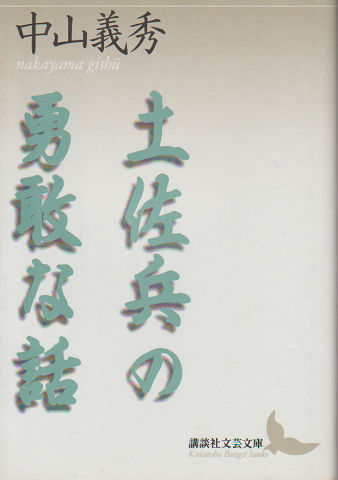 中山義秀
nakayama gishū
土佐兵の
勇敢な話
講談社文芸文庫
Kodansha Bungei bunko